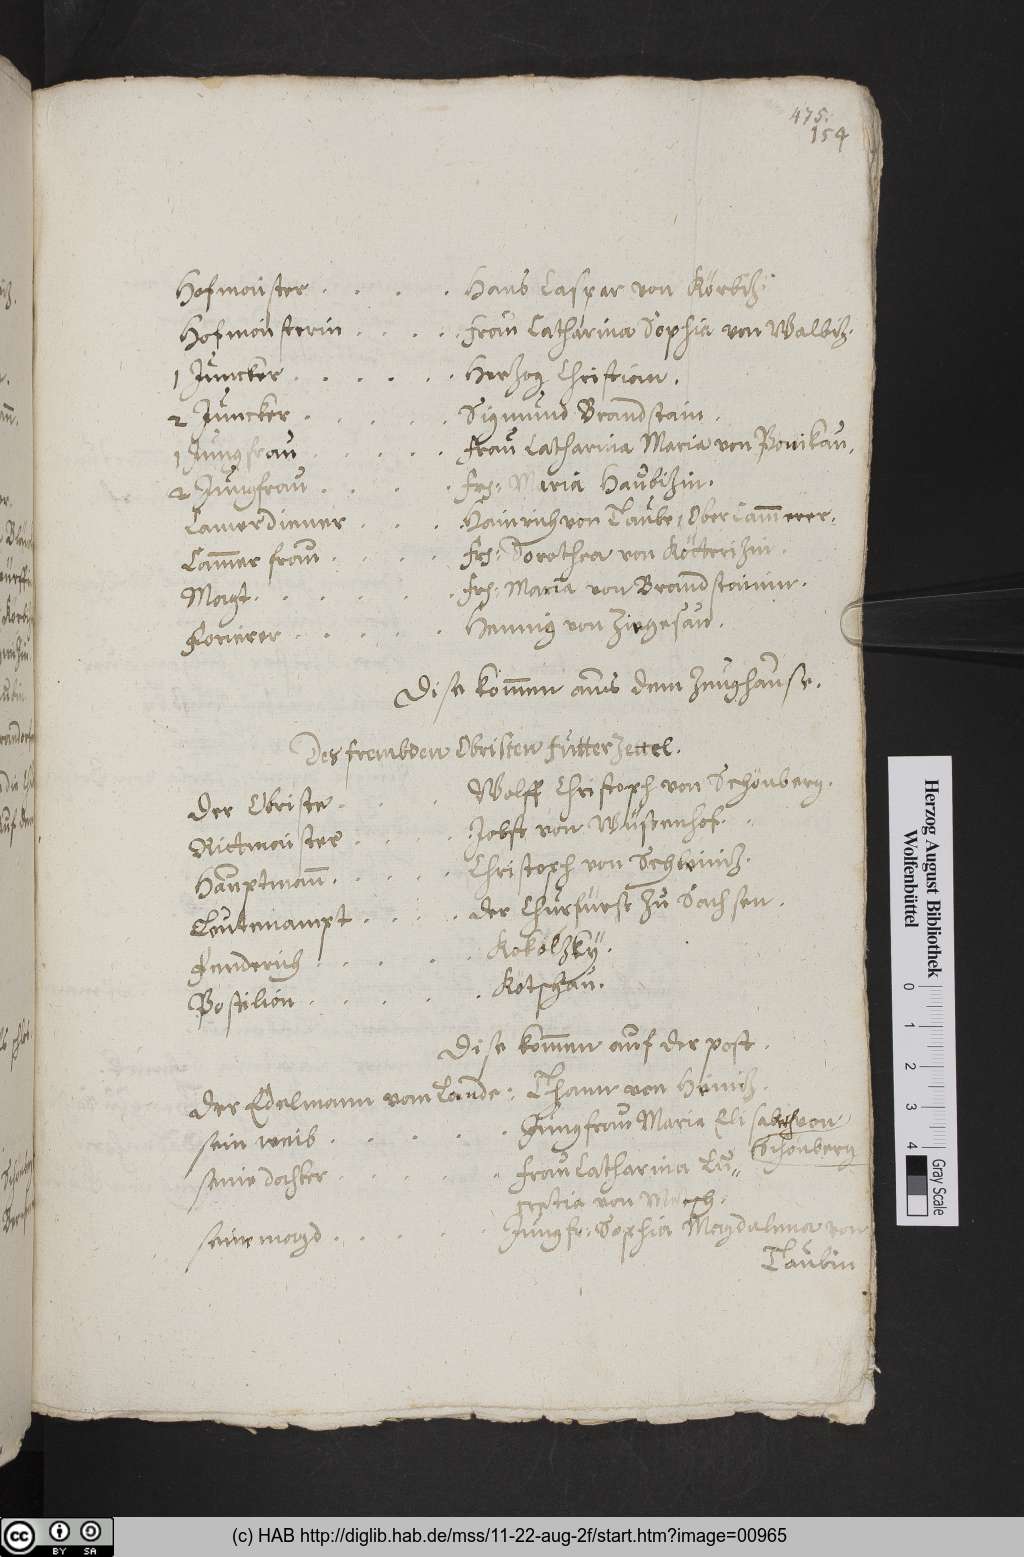 475.
154
Hofmeister . . . . Hans Caspar von Körbitz.
Hofmeisterin . . . . Frau Catharina Sophia von Walbitz.
1 Juncker . . . . . Herzog Christian.
2 Juncker . . . . . Sigmund Brandstain.
1 Jungfrau . . . . . Frau Catharina Maria von Ponikau.
2 Jungfrau . . . . Frh: Maria Haubizin.
Camerdiener . . . Hainrich von Taube, Ober Cam̄erer.
Cam̄er frau . . . . Frh: Dorothea von Kötterizin.
Magt . . . . . . Frh: Maria von Brandstainin.
Forierer . . . . . Hennig von Ziegesau.
Dise kom̄en aus dem Zeughause.
Des frembden Obristen Futter Zettel.
Der Obriste . . . . Wolff Christoph von Schönberg.
Rittmeister . . . . Jobst von Wustenhof.
Hauptman̄ . . . . . Christoph von Schleinitz.
Leutenampt . . . . der Churfürst zu Sachsen.
Fenderich . . . . . Kokolzky.
Postilion . . . . . Kötschau.
Dise kom̄en auf der post.
Der Edelmann vom Lande: Tham von Heinitz.
sein weib . . . . . Jungfrau Maria Elisabeth von
Schönberg
seine dochter . . . . . Frau Catharina Lu-
cretia von
seine magd . . . . . Jungfr: Sophia Magdalena von
Taubin
Herzog August Bibliothek
Wolfenbüttel
0 1 2 3 4
Gray Scale
cc BY SA
(c) HAB http://diglib.hab.de/mss/11-22-aug-2f/start.htm?image=00965